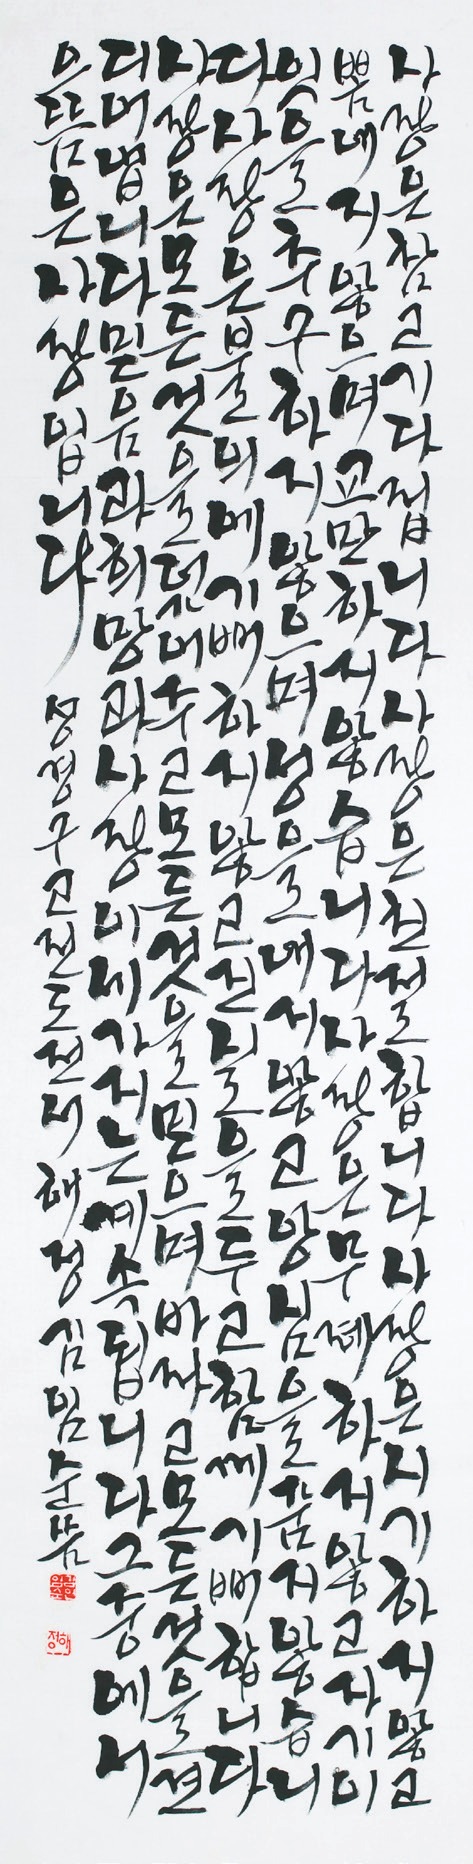 사랑은참고기다립니다사랑은친절합니다사랑은시기하지않고
뽐내지않으며교만하지않습니다사랑은무례하지않고자기이
익을추구하지않으며성을내지않고앙심을품지않습니
다사랑은불의에기뻐하지않고진실을두고함께기뻐합니다
사랑은모든것을덮어주고모든것을믿으며바라고모든것을견
디어냅니다믿음과희망과사랑이세가지는계속됩니다그중에서
으뜸은사랑입니다 성경구고린도전서 해정 씀
해정